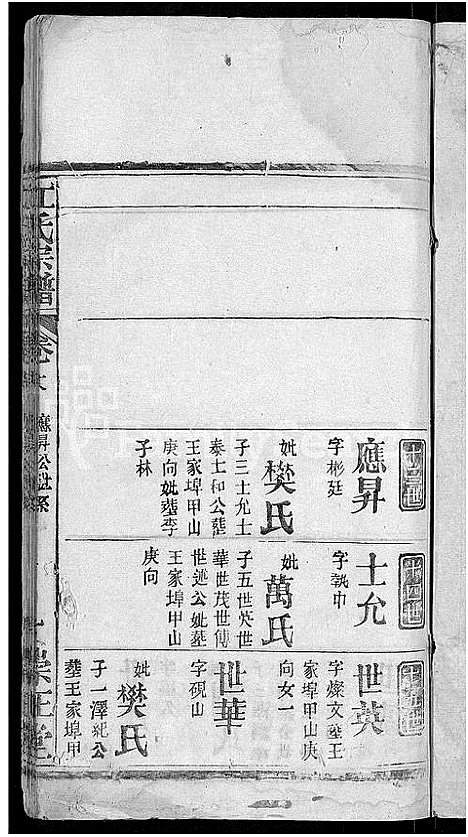 氏宗譜
卷
應昇公世系
應昇
字彬廷
妣樊氏
子三士允士
泰士和公塟
王家埠甲山
庚向妣塟李
子林
十四世
士允
字執中
妣萬氏
子五世英世
華世茂世傳
世延公妣塟
王家埠甲山
庚向
世英
字燦文塟王
家埠甲山庚
向女一
世華
字硯山
妣樊氏
子一澤紀公
塟王家埠甲